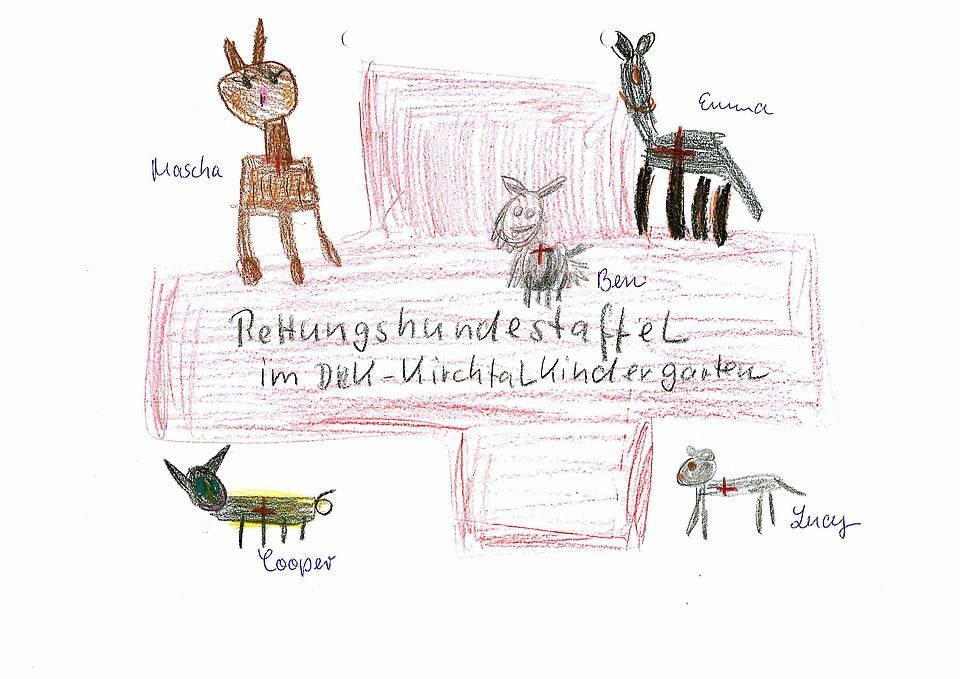 Emma
Mascha
Ben
Rettungshundestaffel
im DRK-Kirchtalkindergarten
Lucy
Cooper